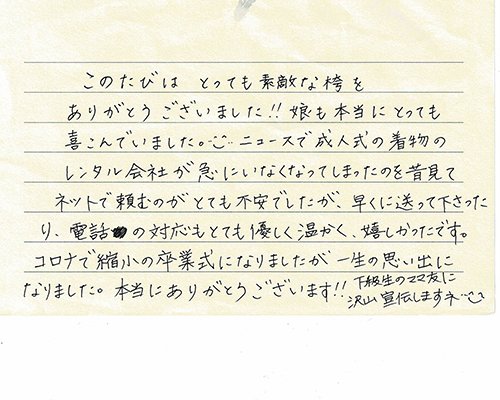 このたびは とっても素敵な袴を
ありがとうございました!! 娘も本当にとっても
喜こんでいました。 ニュースで成人式の着物の
レンタル会社が急にいなくなってしまったのを昔見て
ネットで頼むのがとても不安でしたが、早くに送って下さった
り、電話の対応もとても優しく温かく、嬉しかったです。
コロナで縮小の卒業式になりましたが一生の思い出に
なりました。本当にありがとうございます!!
下級生のママ友に
沢山宣伝しますネ